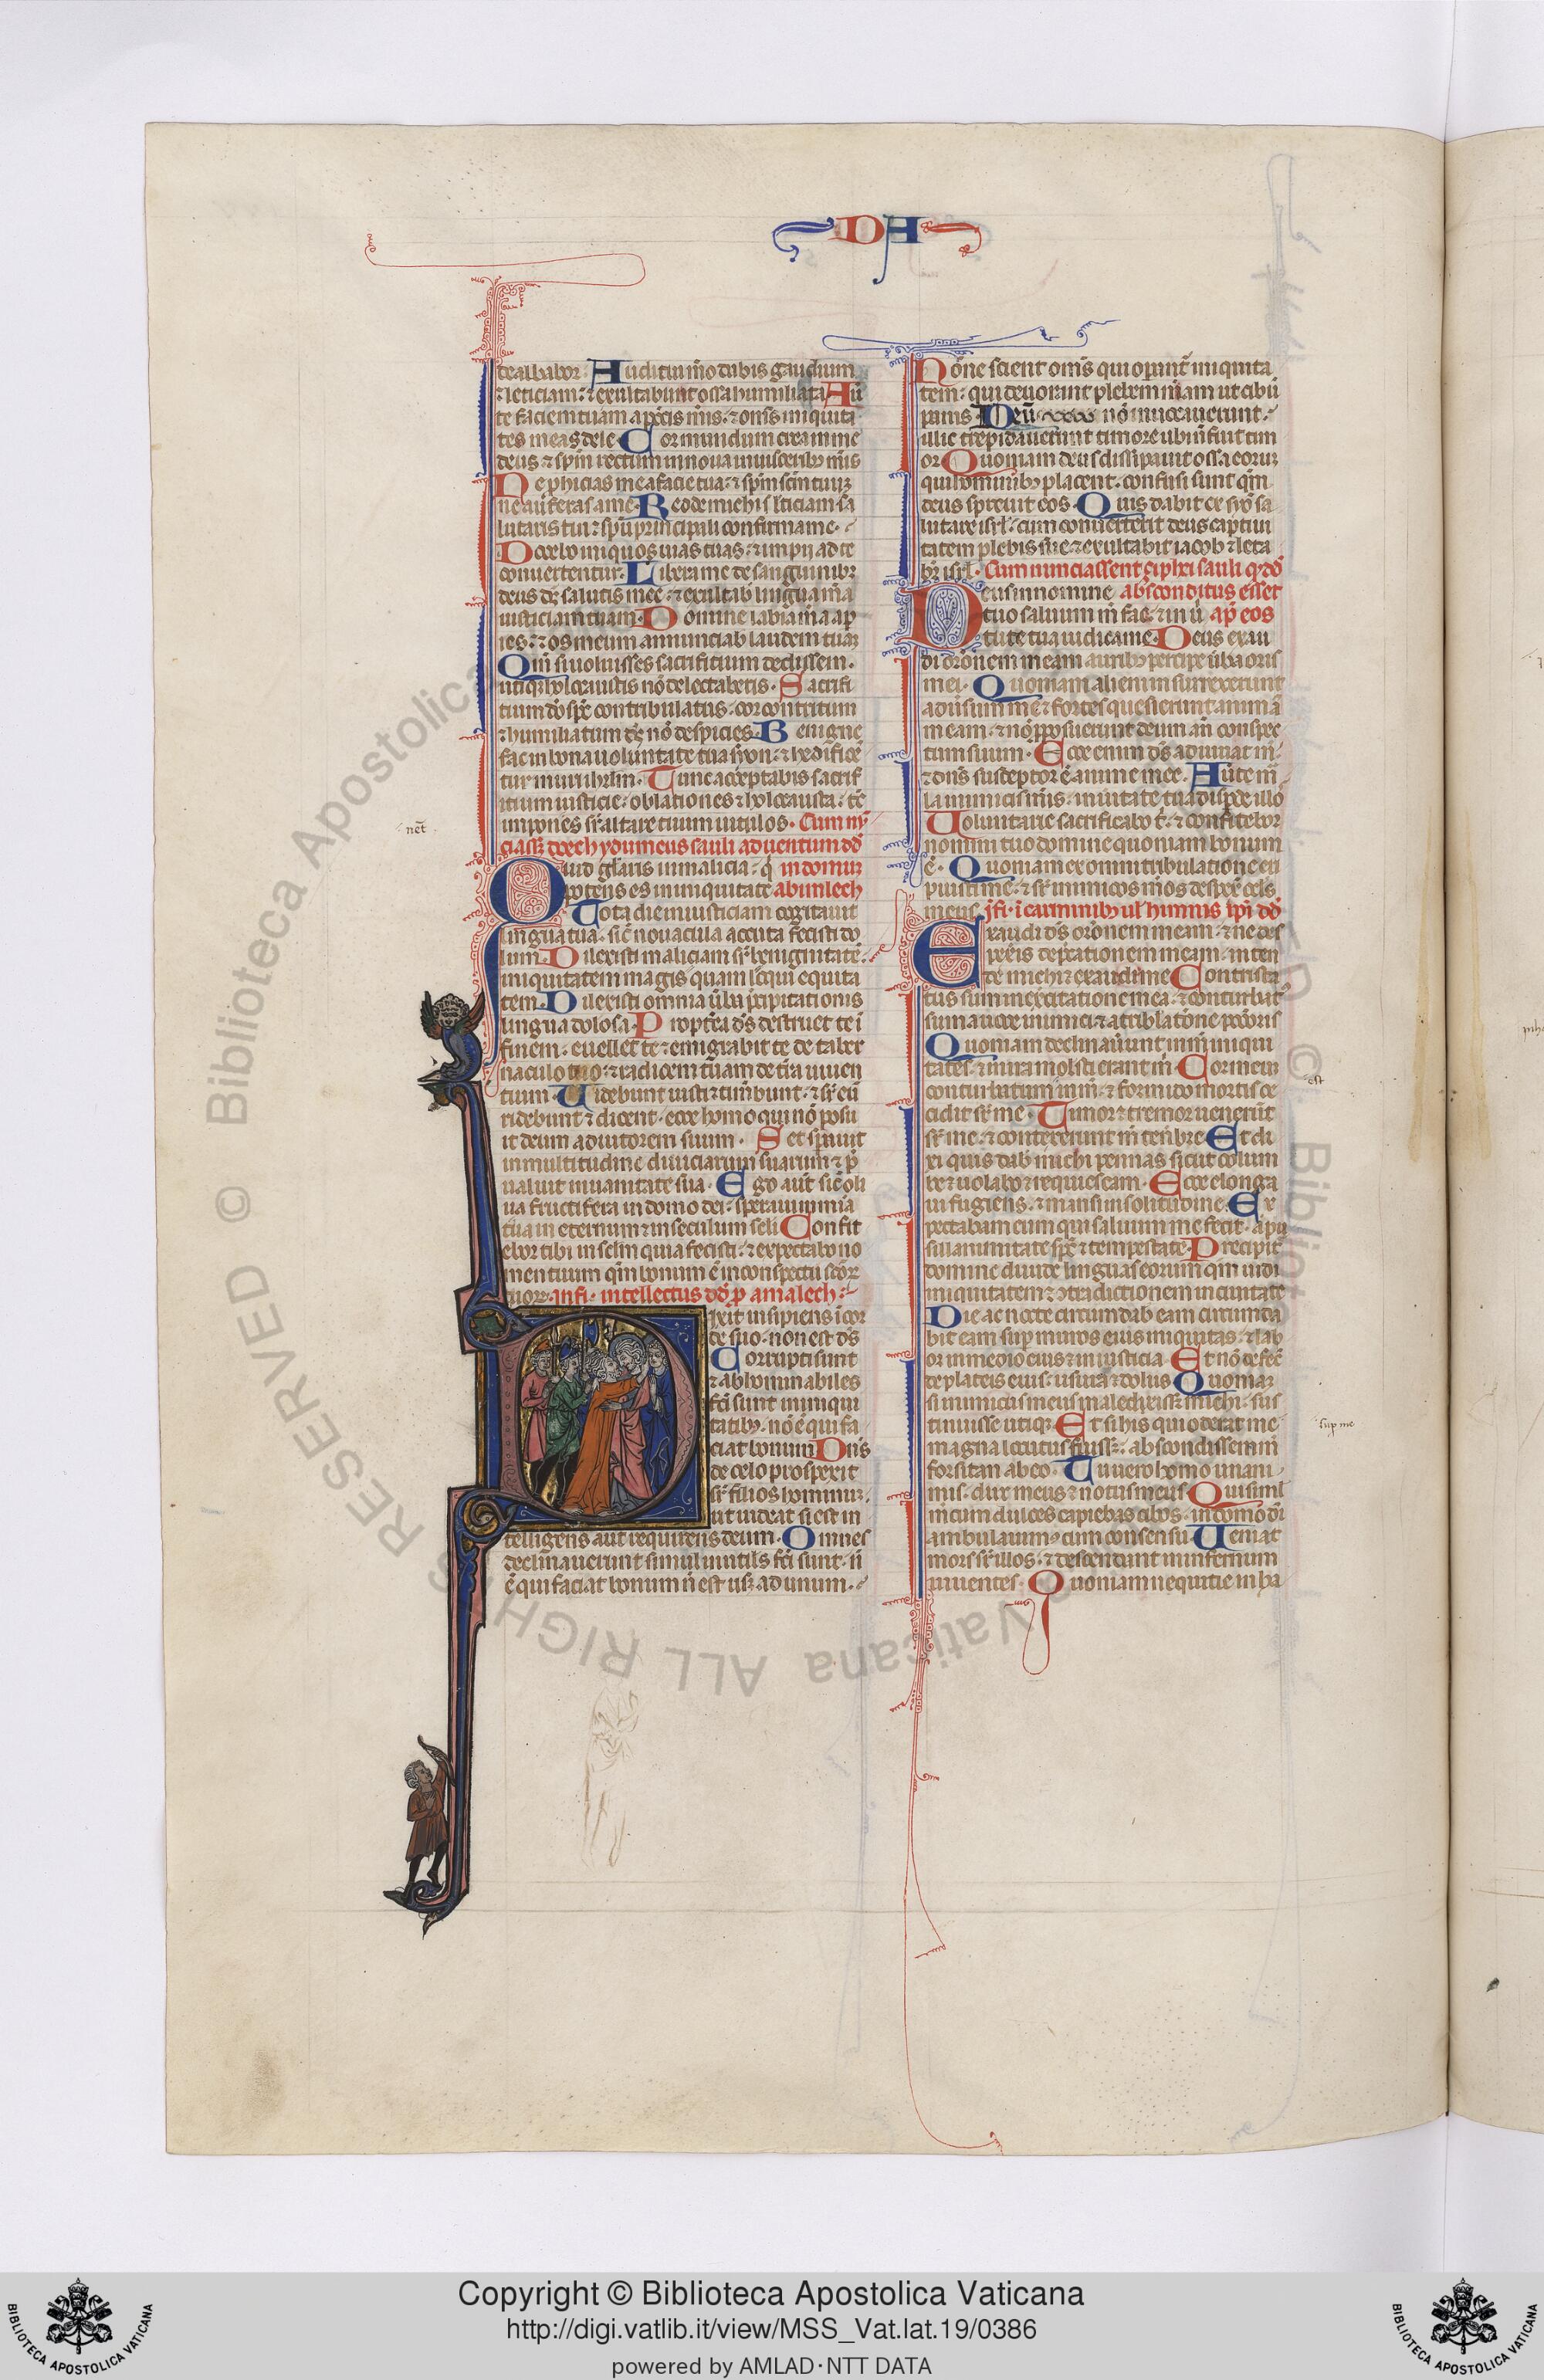 DA
dealbabor. Auditui mͦ dabis gaudium
⁊ leticiam: ⁊ exultabunt ossa humiliata Aū
te faciem tuam a pctīs mīs. ⁊ om̄s iniquita
tes meas dele Cor mundum crea in me
deus ⁊ spm̄ rectum innova in uisceribꝫ mīs
Ne proicias me a facie tua: ⁊ spm̄ sc̄m tuum
ne auferas a me. Redde michi leticiam sa
lutaris tui: ⁊ spū principali confirma me.
Docebo iniquos uias tuas: ⁊ impij ad te
conuertentur. Libera me de sanguinibꝫ
deus dꝫ salutis mee: ⁊ exultab lingua m̄a
iusticiam tuam. Domine labia m̄a ap
ies: ⁊ os meum annunciab laudem tuam
Qm̄ si uoluisses sacrificium dedissem.
utiqꝫ holocaustis nō delectaberis. Sacrifi
cium dō spc̄ contribulatus: cor contritum
⁊ humiliatum dꝫ nō despicies. Benigne
fac in bona uoluntate tua syon: ⁊ hedificē
tur muri ihrlm̄. Tunc acceptabis sacrif
icium iusticie: oblationes ⁊ holocausta: tc̄
imponēs sr̄ altare tuum uitulos. Cum nū
ciasꝫ doech ydumeus sauli aduentum dd̄
Quid glaris in malicia: q̄ in domum
potens es in iniquitate abimlech
Tota die iniusticiam cogitauit
lingua tua: sic̄ nouacula accuta fecisti do
lum. Dilexisti maliciam sr̄ benignitatē:
iniquitatem magis quam loqui equita
tem. Dilexisti omnia ūba p̄cipitationis
lingua dolosa. Proptea dꝫ destruet te ī
finem. euellet te ⁊ emigrabit te de taber
naculo tuo: ⁊ radicem tuam de tīra uiuen
tium. Uidebunt iusti ⁊ timebunt: ⁊ sr̄ eū
ridebunt ⁊ dicent. ecce homo qui nō posu
it deum adiutorem suum. Set sperauit
in multitudine diuiciarum suarum ⁊ p̄
ualuit in uanitate sua. Ego aut̄ sic̄ oli
ua fructifera in domo dei: speraui in mīa
tua in eternum ⁊ in seculum seli Confit
ebor tibi in selm̄ quia fecisti: ⁊ expectabo no
men tuum qm̄ bonum ē in conspectu scōꝝ
tuoꝝ. In fi. intellectus dd̄ p amalech:
ixit insipiens ī cor
de suo. non est dꝫ
Corrupti sunt
⁊ abhominabiles
fc̄i sunt in iniqui
tatibꝫ. nō ē qui fa
ciat bonum Dn̄s
de celo prospexit
sr̄ filios hominum:
ut uideat si est in
telligens aut requirens deum. Omnes
declinauerunt simul inutiles fc̄i sunt: n̄
ē qui faciat bonum n̄ est usqꝫ ad unum.
Nōne scient om̄s qui operant̄ iniquita
tem: qui deuorant plebem m̄am ut cibū
panis Deū nō inuocauerunt.
illic trepidauerunt timore ubi n̄ fuit tim
or Quoniam deus dissipauit ossa eorum
qui hominibꝫ placent. confusi sunt qm̄
deus spreuit eos. Quis dabit ex syō sa
lutare isrl̄: cum conuerterit deus captiui
tatem plebis sue ⁊ exultabit iacob ⁊ leta
bꝫ isrl̄. Cum nunciassent ciphei sauli q̄ dd̄
Deus in nomine absconditus esset
tuo saluum m̄ fac: ⁊ in ū ap̄ eos
tute tua iudica me. Deus exau
di orōnem meam auribꝫ percipe ūba oris
mei. Quoniam alieni insurrexerunt
adūsum me ⁊ fortes quesierunt animā
meam: ⁊ nō pposuerunt deum an̄ conspec
tum suum. Ecce enim dꝫ adiuuat m̄:
⁊ dn̄s susceptor ē anime mee. Auerte m̄
la inimicis mīs: in ueritate tua disperde illo
Uoluntarie sacrificabo t̄: ⁊ confitebor
nomini tuo domine quoniam bonum
ē. Quoniam ex omni tribulatione eri
puisti me: ⁊ sr̄ inimicos mīos despex̄ ocls
meus. In fi. ī carminibꝫ ul̄ himnis ip̄i dd̄
Exaudi dꝫ orōnem meam: ⁊ ne des
pexeris dep̄cationem meam: inten
de michi ⁊ exaudi me Contrista
tus sum in exercitatione mea: ⁊ conturbat̄
sum a uoce inimici ⁊ a tribulatōne pctōris
Quoniam declinauerunt in m̄ iniqui
tates: ⁊ in ira molesti erant m̄ Cor meum
conturbatum in m̄: ⁊ formido mortis ce
cidit sr̄ me. Timor ⁊ tremor uenerūt
sr̄ me: ⁊ contexerunt m̄ tenebre Et di
xi quis dab michi pennas sicut colum
be ⁊ uolabo ⁊ requiescam. Ecce elonga
ui fugiens: ⁊ mansi in solitudine. Ex
pectabam eum qui saluum me fecit. a pu
sillanimitate spc̄ ⁊ tempestate. Precipit
domine diuide linguas eorum qm̄ uidi
iniquitatem ⁊ ꝯtradictionem in ciuitate
Die ac nocte circumdab eam circumda
bit eam sup muros eius iniquitas: ⁊ lab
or in medio eius ⁊ iniusticia. Et nō defec̄
de plateis eius: usura ⁊ dolus Quoniam
si inimicus meus maledixissꝫ michi: sus
tinuissē utiqꝫ. Et si his qui oderat me
magna locutus fuissꝫ: abscondissem m̄
forsitan ab eo. Tu uero homo unani
mis: dux meus ⁊ notus meus Qui siml̄
mecum dulces capiebas cibos: in domo dī
ambulauimꝰ cum consensu Ueniat
mors sr̄ illos: ⁊ descendant in infernum
uiuentes. Quoniam nequitie in ha
net
est
sup me
© Biblioteca Apostolica Vaticana ALL RIGHTS RESERVED
Copyright © Biblioteca Apostolica Vaticana
http://digi.vatlib.it/view/MSS_Vat.lat.19/0386
powered by AMLAD·NTT DATA
BIBLIOTECA APOSTOLICA VATICANA
BIBLIOTECA APOSTOLICA VATICANA